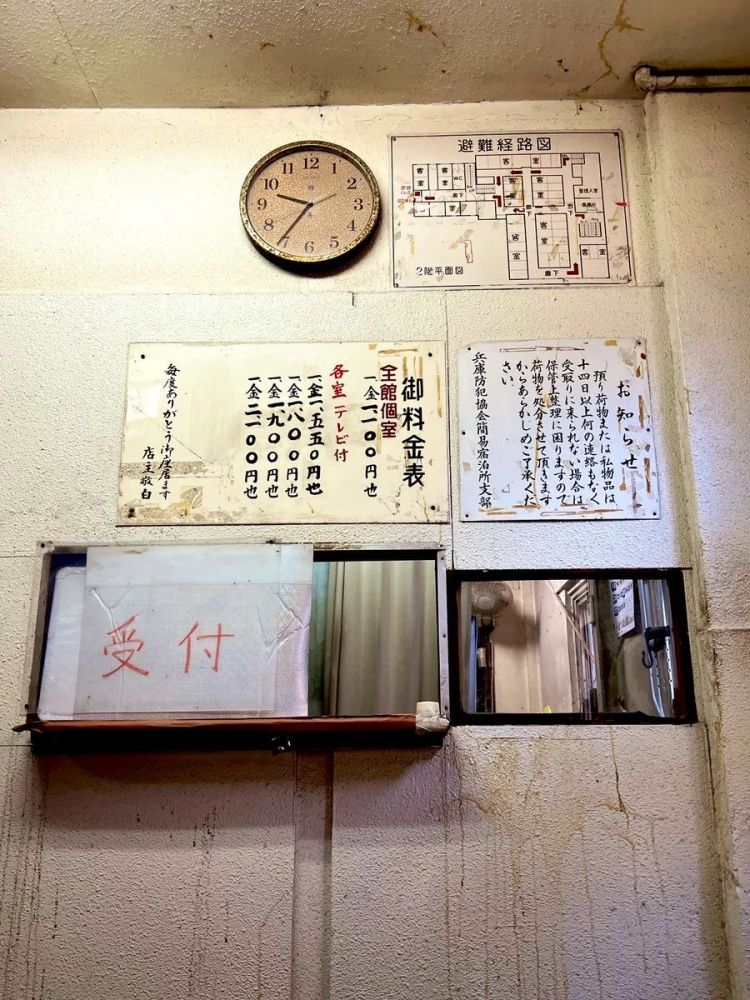 12
1
2
3
4
5
6
7
8
9
10
11
避難経路図
客室
客室
WC
客室
客室
客室
客室
客室
客室
客室
廊下
廊下
管理人室
2階平面図
御料金表
全館個室
一金一、一〇〇円也
各室テレビ付
一金一、五五〇円也
一金一、八〇〇円也
一金一、九〇〇円也
一金二、一〇〇円也
毎度ありがとう御座居ます
店主敬白
お知らせ
預り荷物または私物品は
十四日以上何の連絡もなく
受取りに来られない場合は
保管上整理に困りますので
荷物を処分させて頂きます
からあらかじめご了承くだ
さい。
兵庫防犯協会簡易宿泊所支部
受付